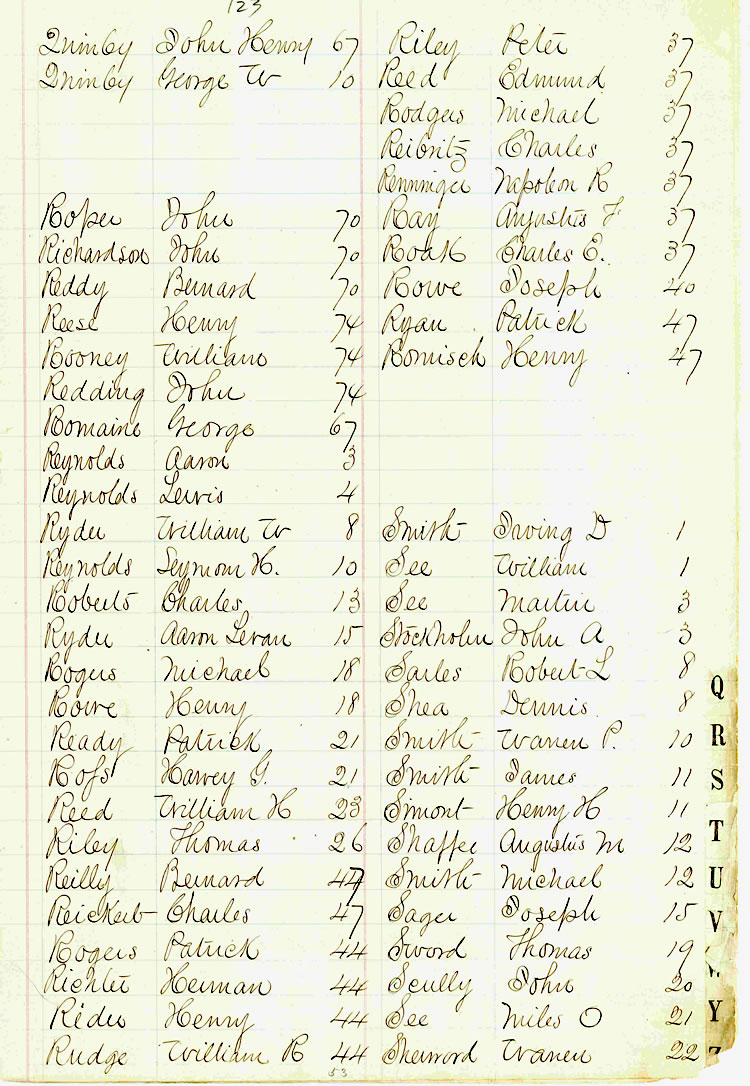 123
Quimby John Henry 67
Quimby George W 10
Roper John 70
Richardson John 70
Reddy Bernard 70
Reese Henry 74
Rooney William 74
Redding John 74
Romaine George 67
Reynolds Aaron 3
Reynolds Lewis 4
Ryder William W 8
Reynolds Seymour H. 10
Roberts Charles 13
Ryder Aaron Levan 15
Rogers Michael 18
Rowe Henry 18
Ready Patrick 21
Rofs Harvey G. 21
Reed William H 23
Riley Thomas 26
Reilly Bernard 47
Reickert Charles 47
Rogers Patrick 44
Richter Herman 44
Rider Henry 44
Rudge William R 44
Riley Peter 37
Reed Edmund 37
Rodgers Michael 37
Reibritz Charles 37
Renninger Napoleon R 37
Ray Augustus F. 37
Roak Charles E. 37
Rowe Joseph 40
Ryan Patrick 47
Romisch Henry 47
Smith Irving D 1
See William 1
See Martin 3
Stockholm John A 3
Sarles Robert L 8
Shea Dennis 8
Smith Warren P. 10
Smith James 11
Simont Henry H 11
Shaffer Augustus M 12
Smith Michael 12
Sager Joseph 15
Sword Thomas 19
Scully John 20
See Miles O 21
Sherword Warren 22
53
Q
R
S
T
U
V
Y